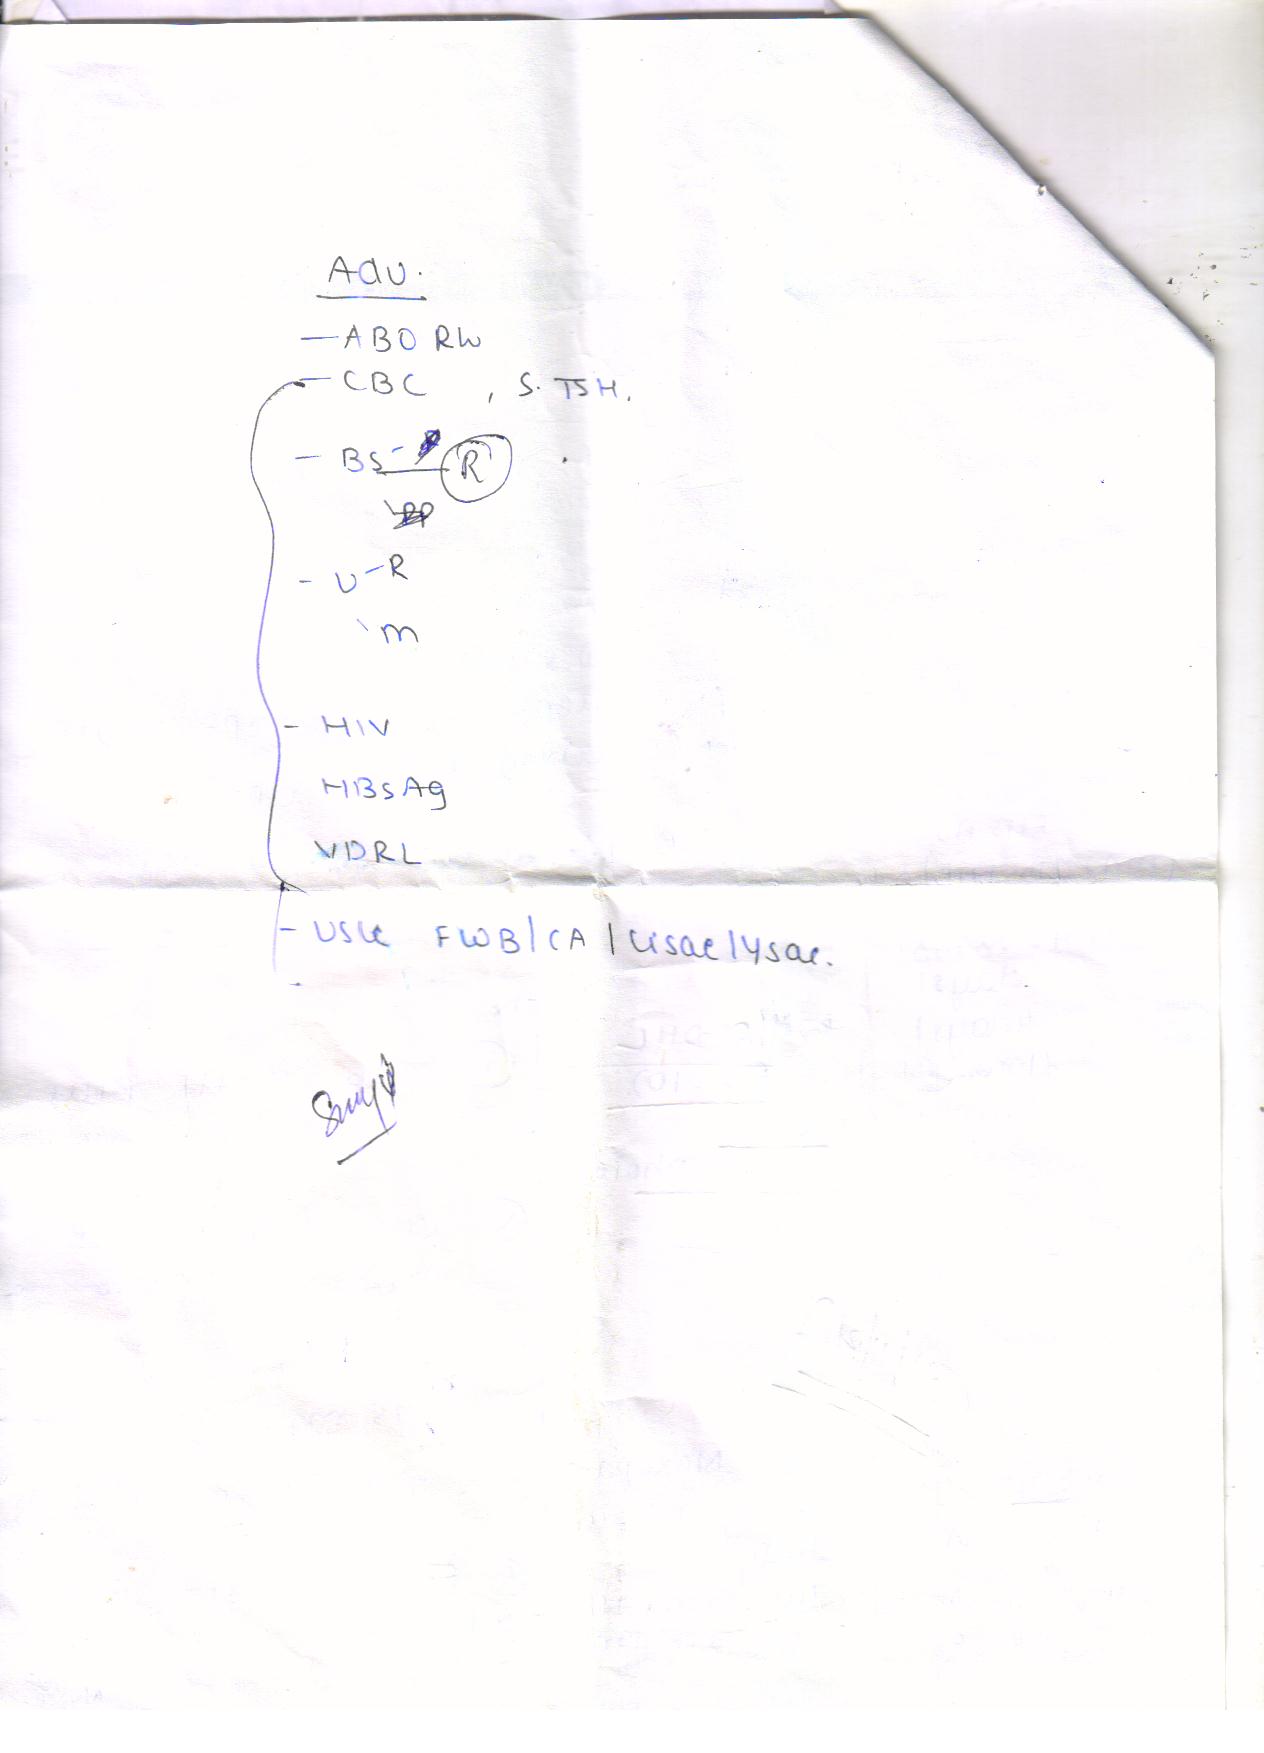 Adv.
- ABO Rh
- CBC , S. TSH.
- BS - R
- U - R
m
- HIV
HBsAg
VDRL
- USG FWB/CA/